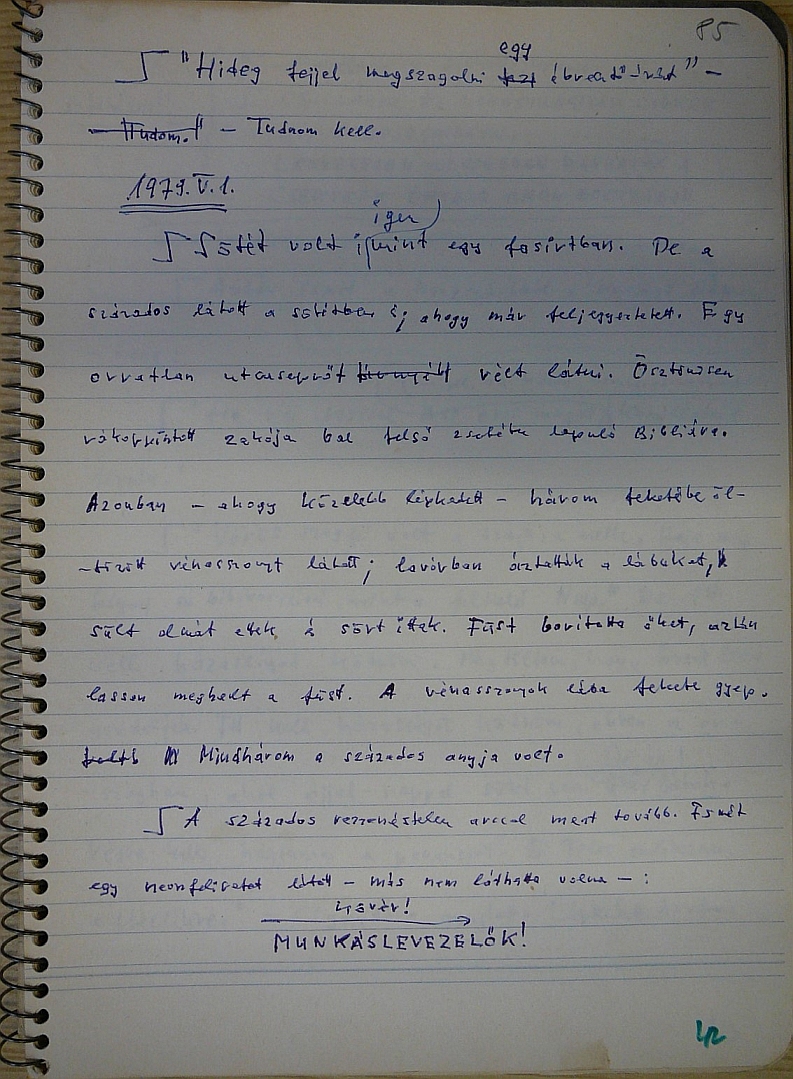 85
egy
"Hideg fejjel megszagolni ébresztőórát" –
"Tudom." – Tudnom kell.
1979. V. 1.
igen
Sötét volt, mint egy fasírtban. De a
százados látott a sötétben is, ahogy már feljegyeztetett. Egy
orvatlan utcaseprőt vélt látni. Ösztönösen
rákoppintott zakója bal felső zsebében lapuló Bibliára.
Azonban – ahogy közelebb léphetett – három feketébe öl-
-tözött vénasszonyt látott; lavórban áztatták a lábukat,
sült almát ettek és sört ittak. Füst borította őket, aztán
lassan meghalt a füst. A vénasszonyok lába fekete gyep.
Mindhárom a százados anyja volt.
A százados rezzenéstelen arccal ment tovább. Ismét
egy neonfeliratot látott – más nem láthatta volna – :
MUNKÁSLEVEZELŐK!
42